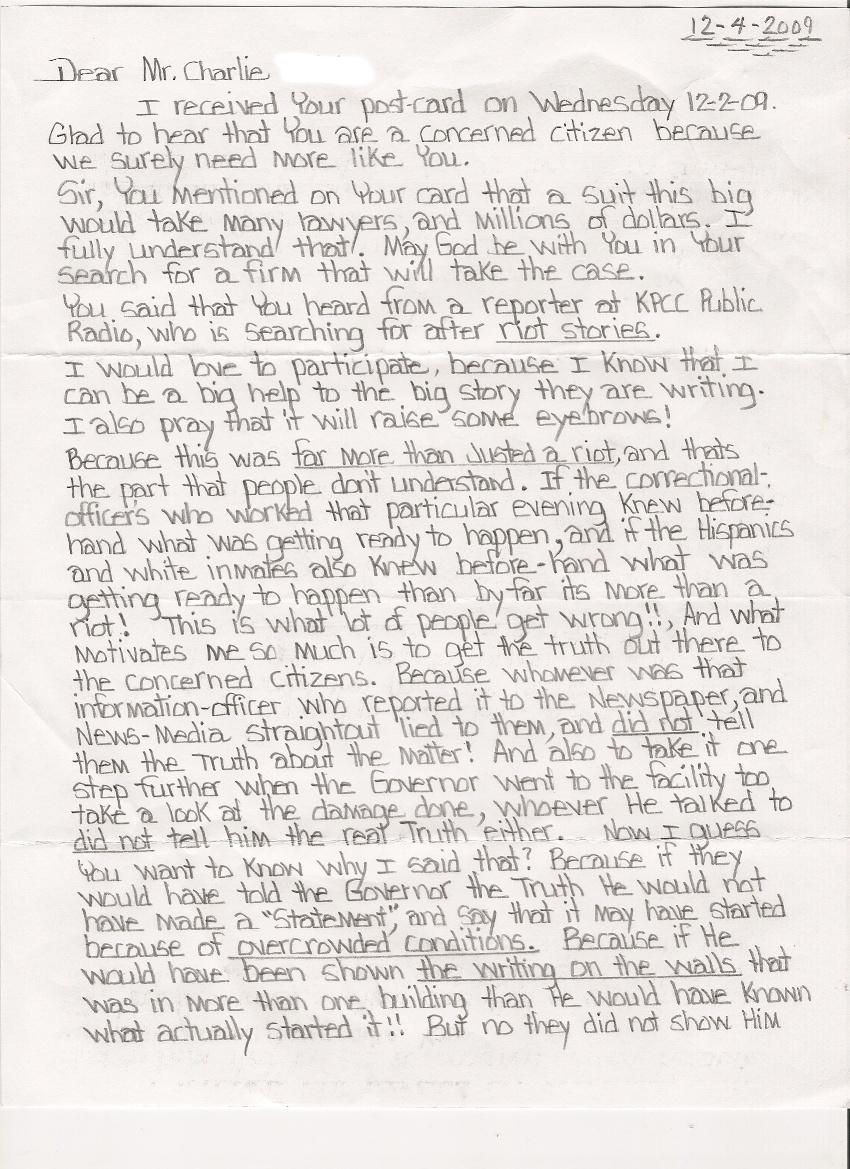 12-4-2009
Dear Mr. Charlie
I received Your post-card on Wednesday 12-2-09.
Glad to hear that You are a concerned citizen because
we surely need more like You.
Sir, You Mentioned on Your card that a suit this big
would take many lawyers, and Millions of dollars. I
fully understand that!. May God be with You in Your
search for a firm that will take the case.
You said that You heard from a reporter at KPCC Public
Radio, who is searching for after riot stories.
I would love to participate, because I Know that I
can be a big help to the big story they are writing.
I also pray that it will raise some eyebrows!
Because this was far more than Justed a riot, and thats
the part that people don't understand. If the correctional-
officer's who worked that particular evening Knew before-
hand what was getting ready to happen, and if the Hispanics
and white inmates also Knew before-hand what was
getting ready to happen than by far its More than a
riot! This is what lot of people get wrong!!, And what
Motivates me so much is to get the truth out there to
the concerned Citizens. Because whomever was that
information-officer who reported it to the Newspaper, and
News-Media straightout lied to them, and did not tell
them the Truth about the Matter! And also to take it one
step further when the Governor went to the facility too
take a look at the damage done, whoever He talked to
did not tell him the real Truth either. Now I guess
You want to Know why I said that? Because if they
would have told the Governor the Truth He would not
have made a "Statement", and say that it May have started
because of overcrowded conditions. Because if He
would have been shown the writing on the walls that
was in more than one building than He would have Known
what actually started it!! But no they did not show HiM